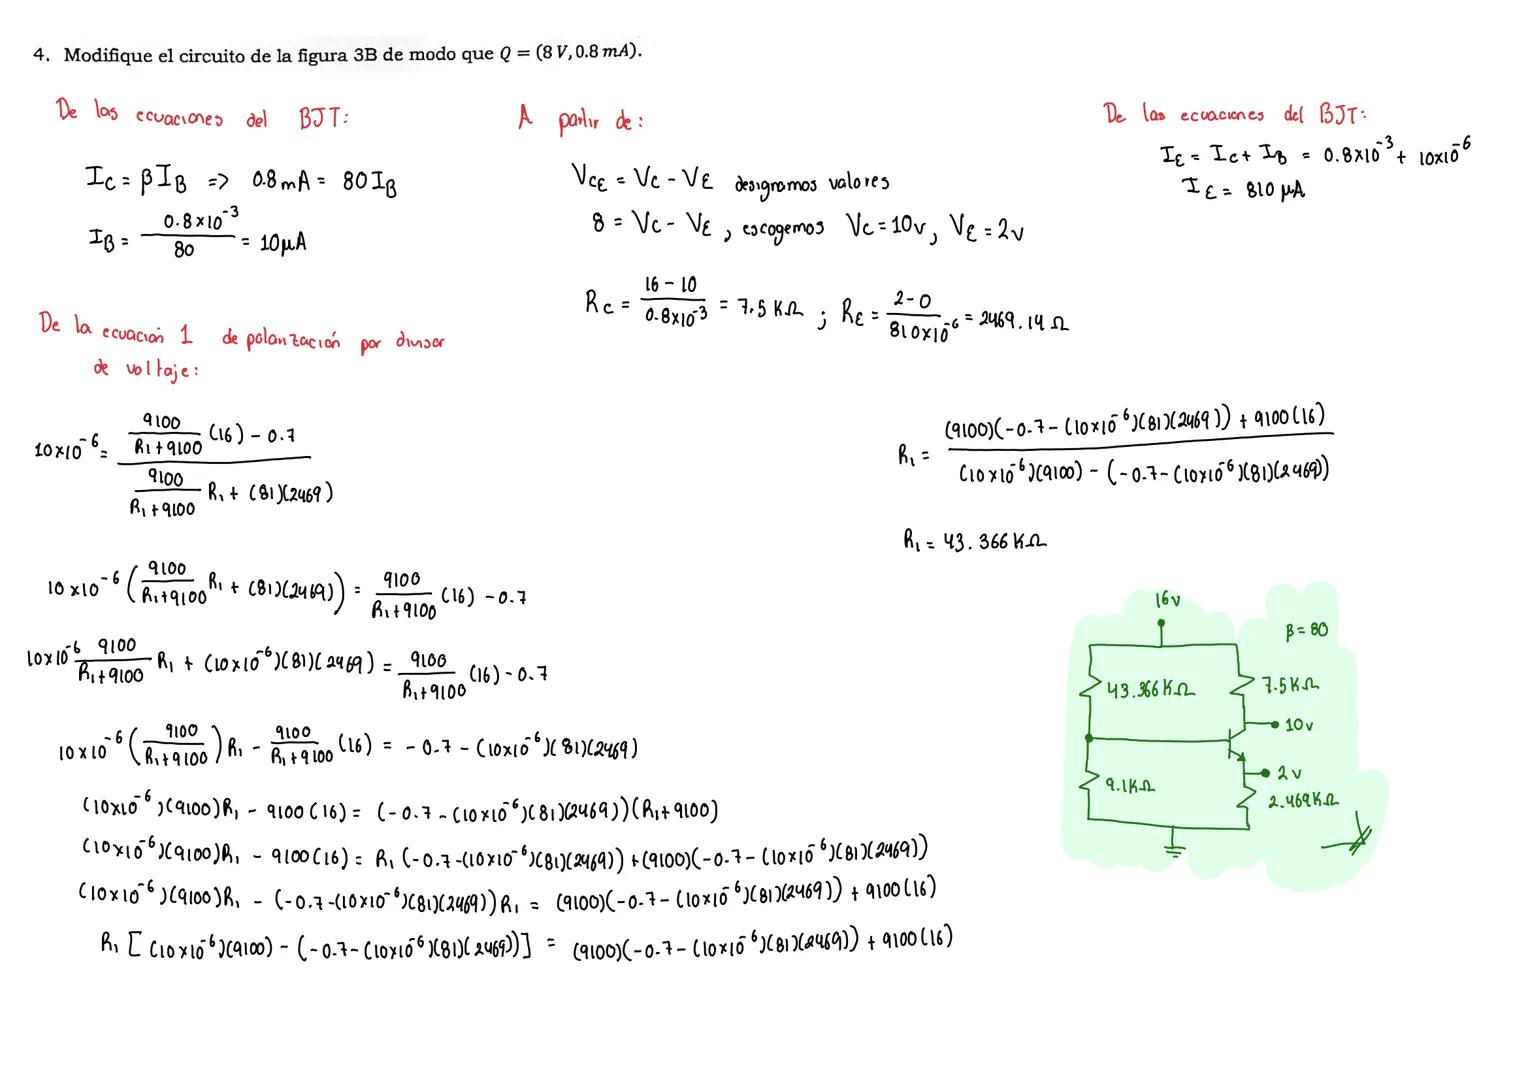 4. Modifique el circuito de la figura 3B de modo que Q = (8 V, 0.8 mA).
De las ecuaciones del BJT:
I_C = βI_B => 0.8mA = 80 I_B
I_B = 0.8x10^-3 / 80 = 10μA
A partir de:
V_CE = V_C - V_E designamos valores
8 = V_C - V_E , escogemos V_C = 10v, V_E = 2v
R_C = (16 - 10) / (0.8x10^-3) = 7.5 KΩ ; R_E = (2-0) / (810x10^-6) = 2469.14 Ω
De las ecuaciones del BJT:
I_E = I_C + I_B = 0.8x10^-3 + 10x10^-6
I_E = 810 μA
De la ecuación 1 de polarización por divisor
de voltaje:
10x10^-6 = (9100/(R_1+9100) (16) - 0.7) / (9100/(R_1+9100) R_1 + (81)(2469))
10x10^-6 (9100/(R_1+9100) R_1 + (81)(2469)) = 9100/(R_1+9100) (16) - 0.7
10x10^-6 9100/(R_1+9100) R_1 + (10x10^-6)(81)(2469) = 9100/(R_1+9100) (16) - 0.7
10x10^-6 (9100/(R_1+9100)) R_1 - 9100/(R_1+9100) (16) = -0.7 - (10x10^-6)(81)(2469)
(10x10^-6)(9100)R_1 - 9100(16) = (-0.7 - (10x10^-6)(81)(2469))(R_1+9100)
(10x10^-6)(9100)R_1 - 9100(16) = R_1 (-0.7-(10x10^-6)(81)(2469)) + (9100)(-0.7-(10x10^-6)(81)(2469))
(10x10^-6)(9100)R_1 - (-0.7-(10x10^-6)(81)(2469))R_1 = (9100)(-0.7-(10x10^-6)(81)(2469)) + 9100(16)
R_1 [(10x10^-6)(9100) - (-0.7-(10x10^-6)(81)(2469))] = (9100)(-0.7-(10x10^-6)(81)(2469)) + 9100(16)
R_1 = ((9100)(-0.7-(10x10^-6)(81)(2469)) + 9100(16)) / ((10x10^-6)(9100) - (-0.7-(10x10^-6)(81)(2469)))
R_1 = 43.366 KΩ
16v
β = 80
43.366 KΩ
7.5KΩ
10v
2v
9.1KΩ
2.469KΩ